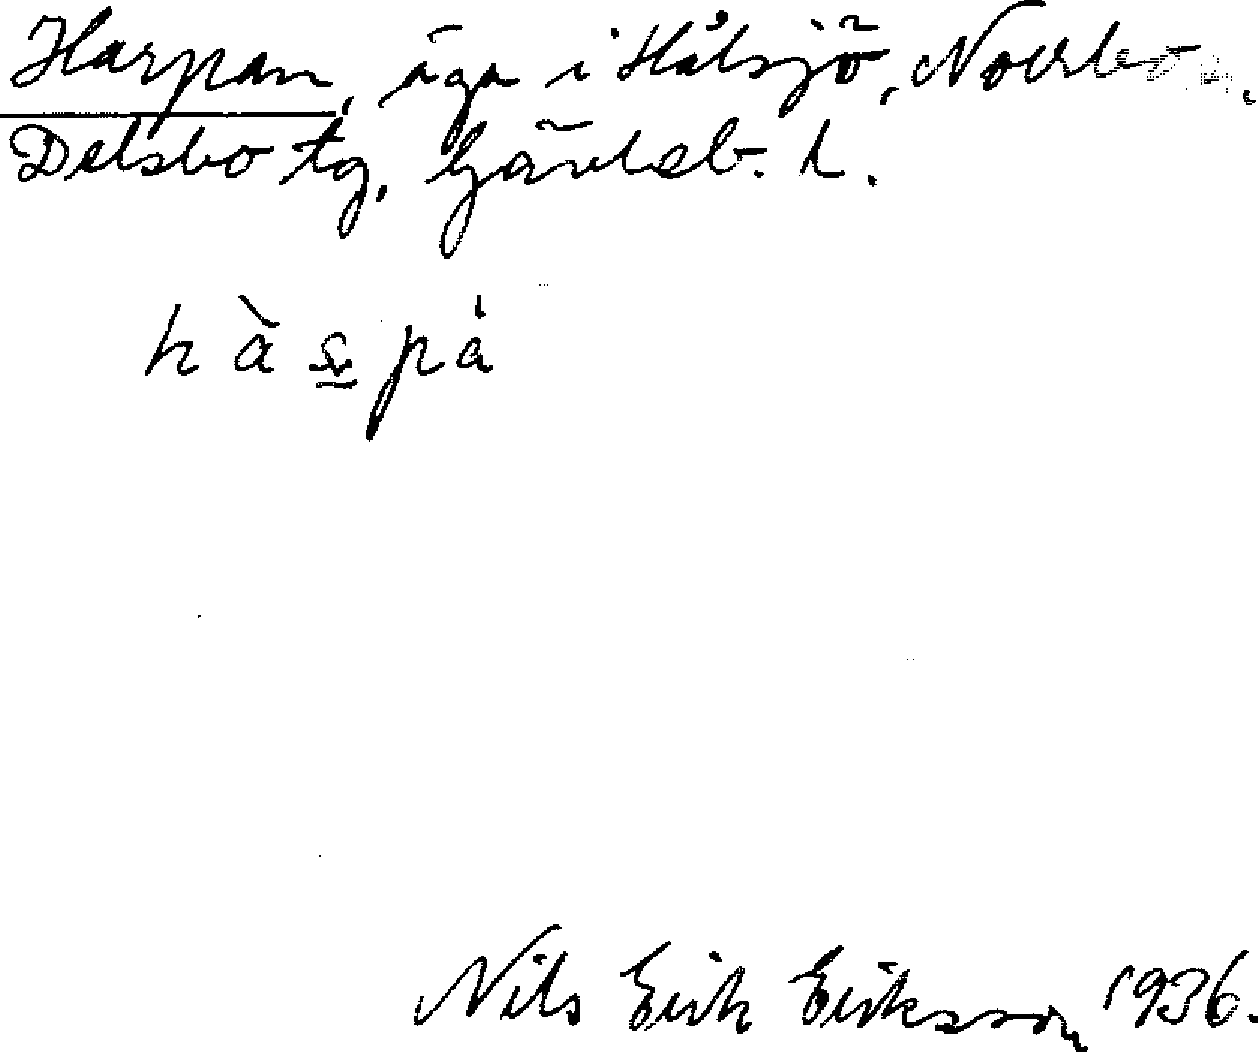 Harpan, äga i Hålsjö, Norrbo sn.
Delsbo tg, Gävleb. l.
h à s̳ p å
Nils Erik Eriksson 1936.